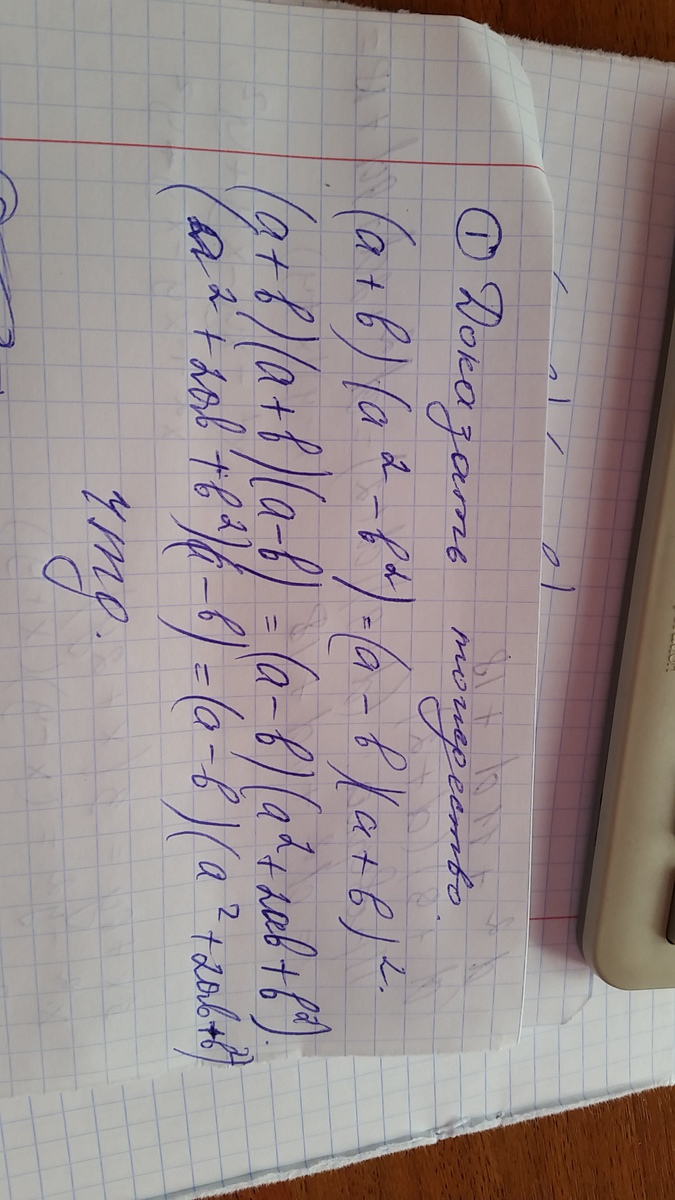 ① Доказать тождество.
(a + b)(a² - b²) = (a - b)(a + b)².
(a + b)(a + b)(a - b) = (a - b)(a² + 2ab + b²).
(a² + 2ab + b²)(a - b) = (a - b)(a² + 2ab + b²)
чтд.